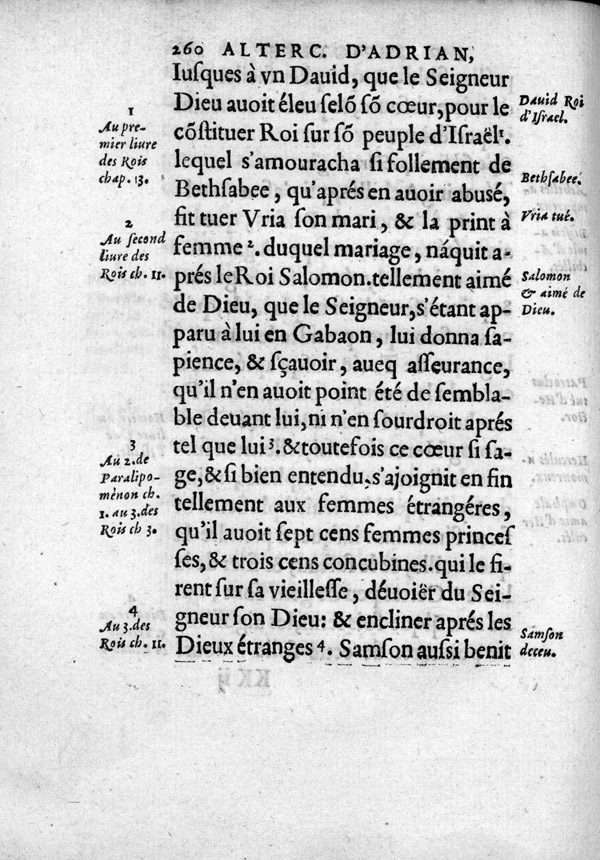 260 ALTERC. D'ADRIAN,
Iuſques à vn Dauid, que le Seigneur
Dieu auoit éleu ſelõ ſõ cœur, pour le
cõſtituer Roi ſur ſõ peuple d'Iſraël¹.
lequel s'amouracha ſi follement de
Bethſabee, qu'aprés en auoir abusé,
fit tuer Vria ſon mari, & la print à
femme ². duquel mariage, náquit a-
prés le Roi Salomon. tellement aimé
de Dieu, que le Seigneur, s'étant ap-
paru à lui en Gabaon, lui donna ſa-
pience, & ſçauoir, aueq aſſeurance,
qu'il n'en auoit point été de ſembla-
ble deuant lui, ni n'en ſourdroit aprés
tel que lui ³. & toutefois ce cœur ſi ſa-
ge, & ſi bien entendu, s'ajoignit en fin
tellement aux femmes étrangéres,
qu'il auoit ſept cens femmes princeſ
ſes, & trois cens concubines. qui le fi-
rent ſur ſa vieilleſſe, déuoiër du Sei-
gneur ſon Dieu: & encliner aprés les
Dieux étranges ⁴. Samſon auſsi benit
1
Au pre-
mier liure
des Rois
chap. 13.
2
Au ſecond
liure des
Rois ch. 11.
3
Au 2. de
Paralipo-
mènon ch.
1. au 3. des
Rois ch 3.
4
Au 3. des
Rois ch. 11.
Dauid Roi
d'Iſrael.
Bethſabee.
Vria tué.
Salomon
& aimé de
Dieu.
Samſon
deceu.